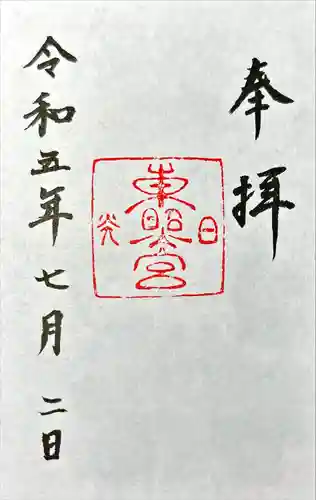 奉拝
日光
東照宮
令和五年七月二日